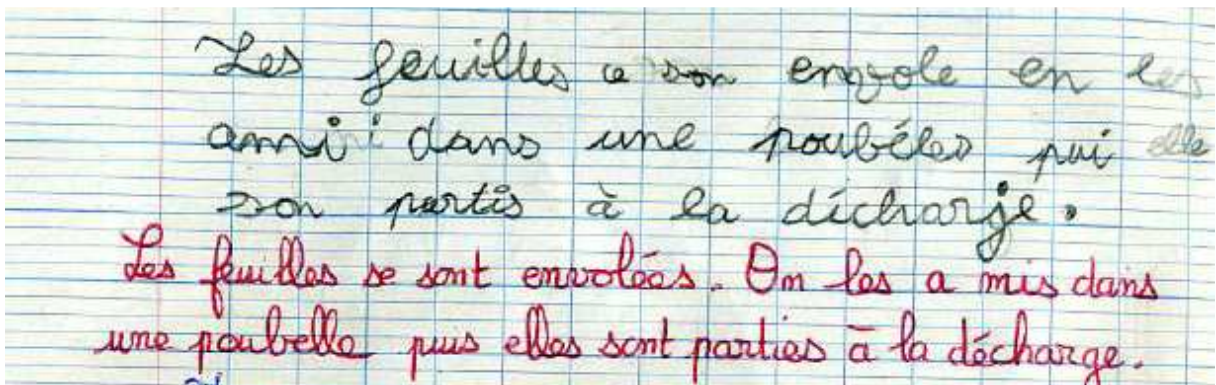 Les feuilles ce son envole en les
ami dans une poubéles pui elle
son partis à la dícharje.
Les feuilles se sont envolées. On les a mis dans
une poubelle puis elles sont parties à la décharge.